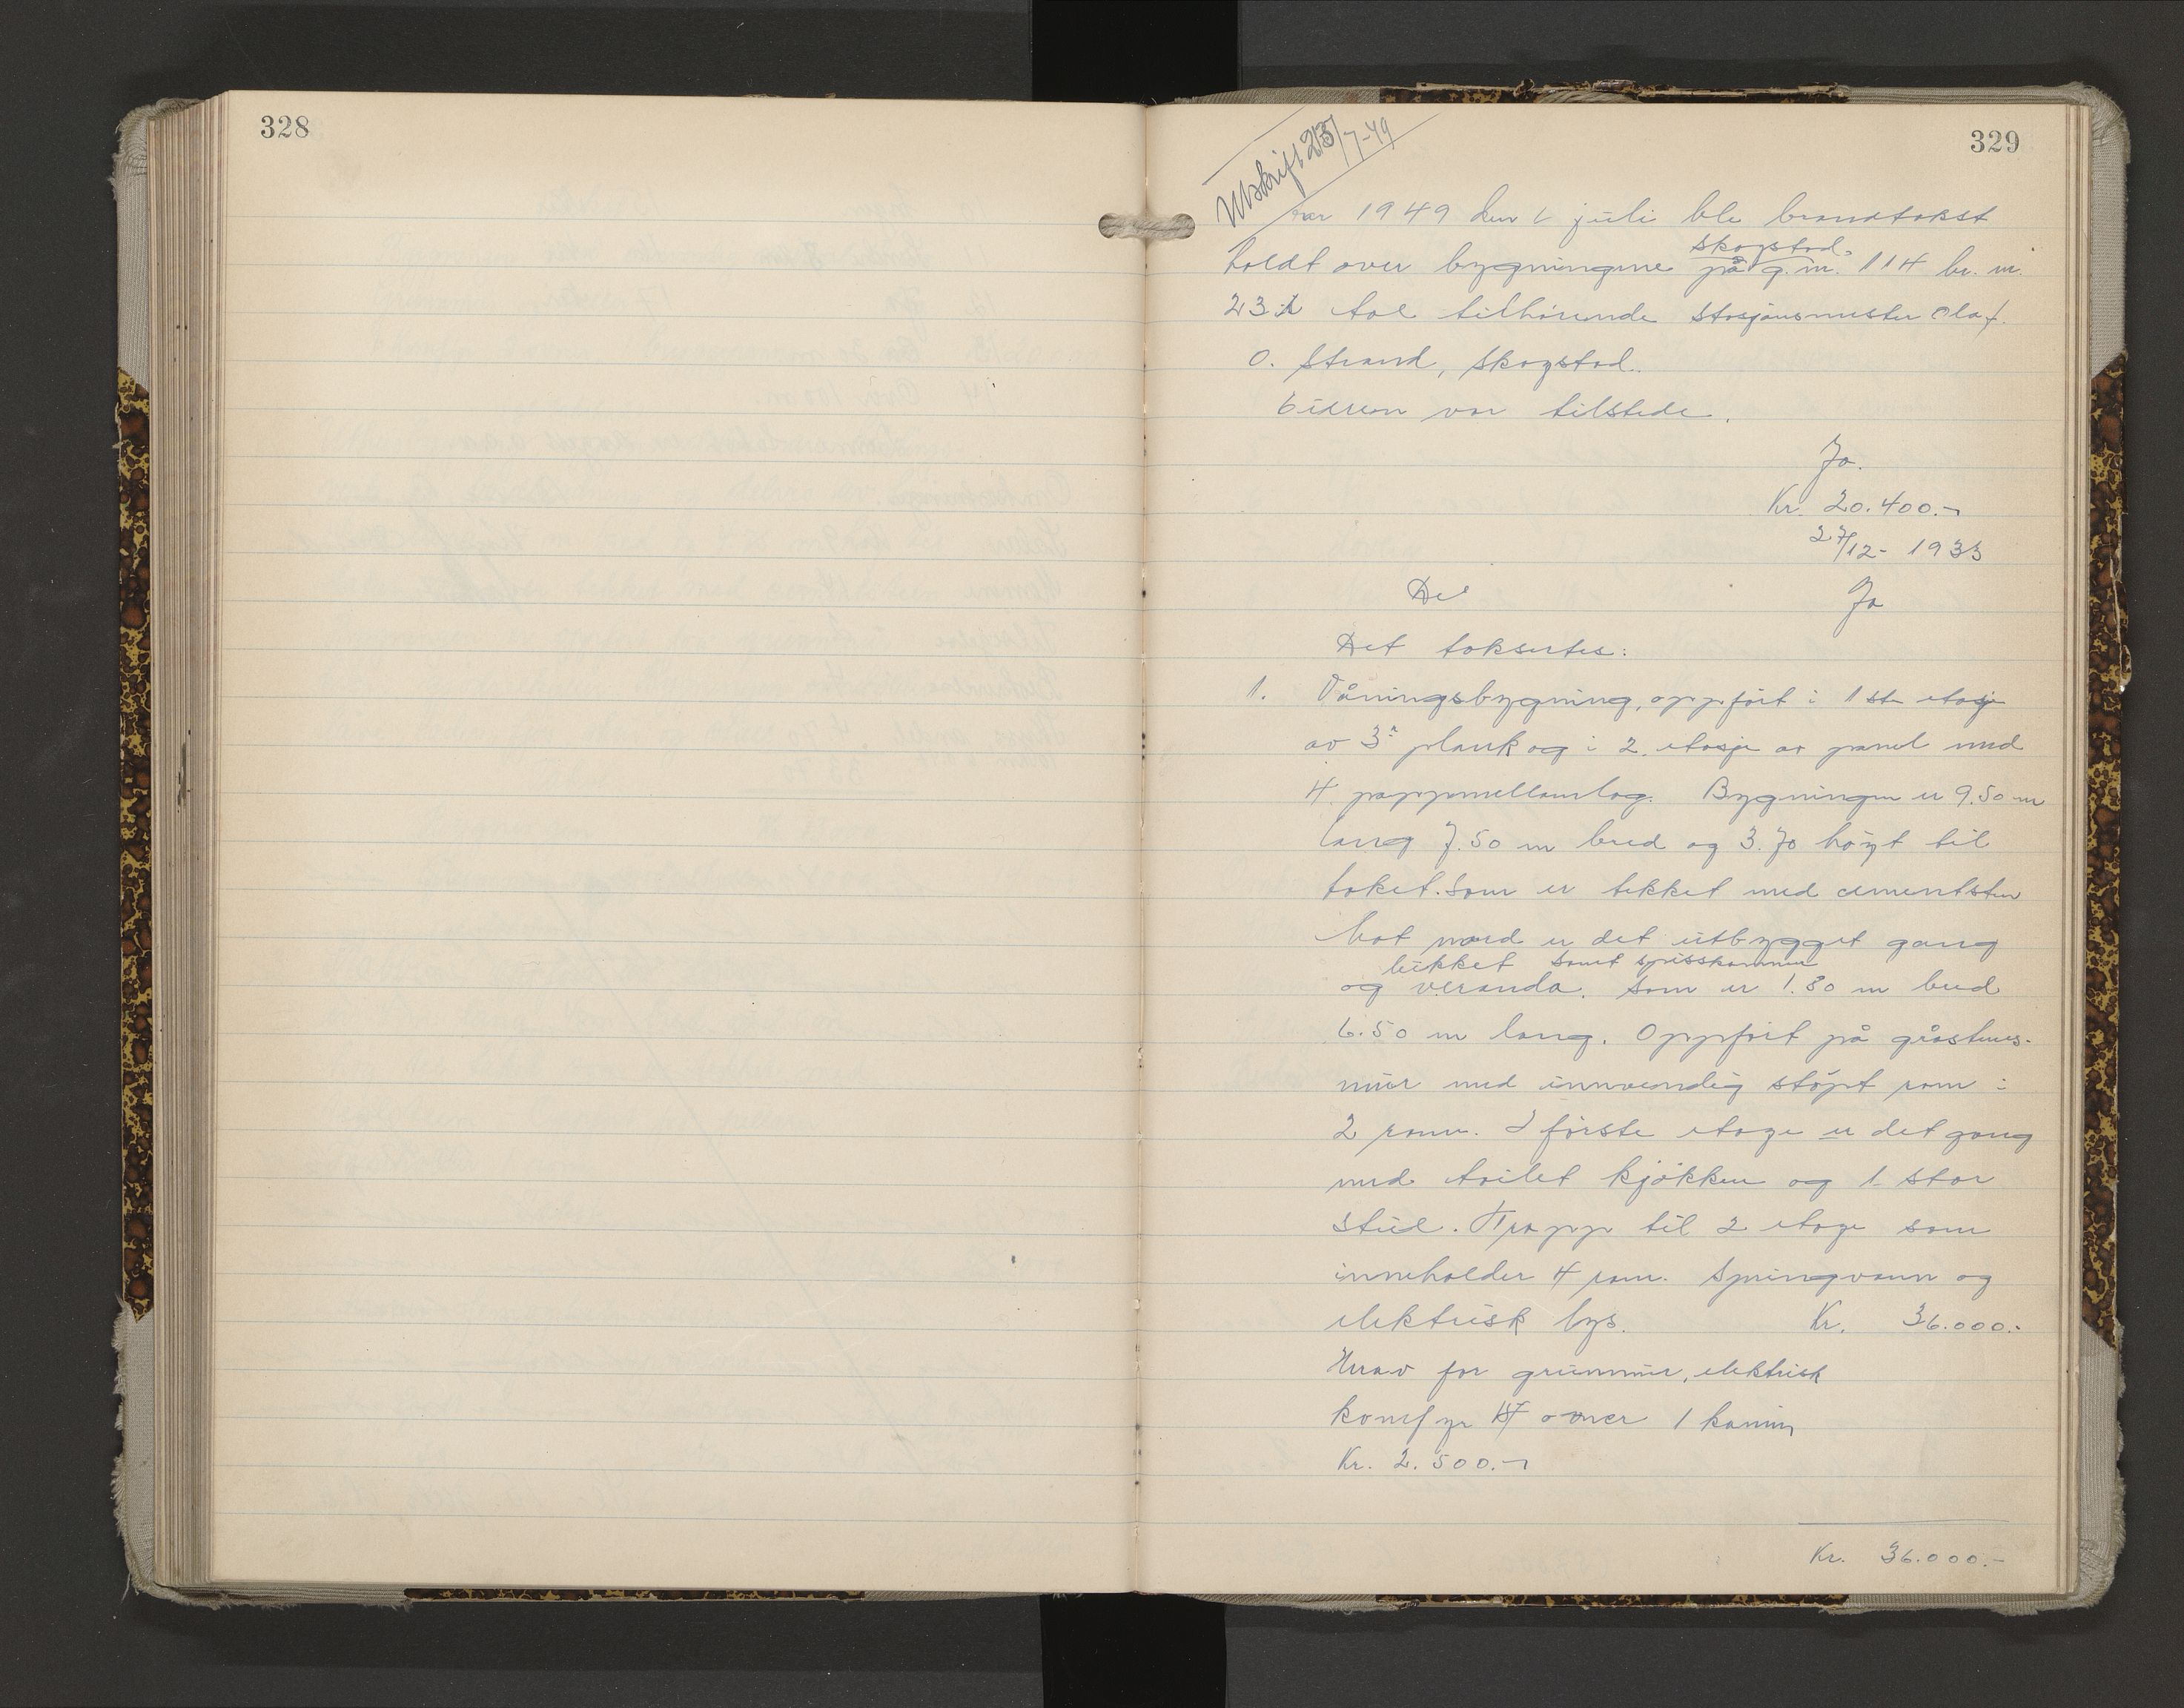 328
329
Utskrift 23/7-49
År 1949 den 6 juli ble brandtakst
skogstad
holdt over bygningene på g.nr. 114 br. nr.
23 i Aal tilhørende stasjonsmester Olaf
O. Strand, Skogstad.
Eieren var tilstede.
Ja.
Kr. 20.400.-
27/12- 1933
De
Ja
Det taksertes:
1. Våningsbygning, oppført i 1ste etasje
av 3" plank og i 2. etasje av panel med
4 pappmellomlag. Bygningen er 9.50 m
lang 7.50 m bred og 3.70 høyt til
taket. Som er tekket med cementsten
Mot nord er det utbygget gang
lukket samt spisskammer
og veranda. som er 1.80 m bred
6.50 m lang. Oppført på gråstens-
mur med innvendig støpt rom i
2 rom. I første etage er det gang
med toilet kjøkken og 1 stor
stue. Trapp til 2 etage som
inneholder 4 rom. Springvann og
elektrisk lys. Kr. 36.000.-
Herav for grunnmur, elektrisk
komfyr 4 ovner 1 kamin
Kr. 2.500.-
Kr. 36.000.-